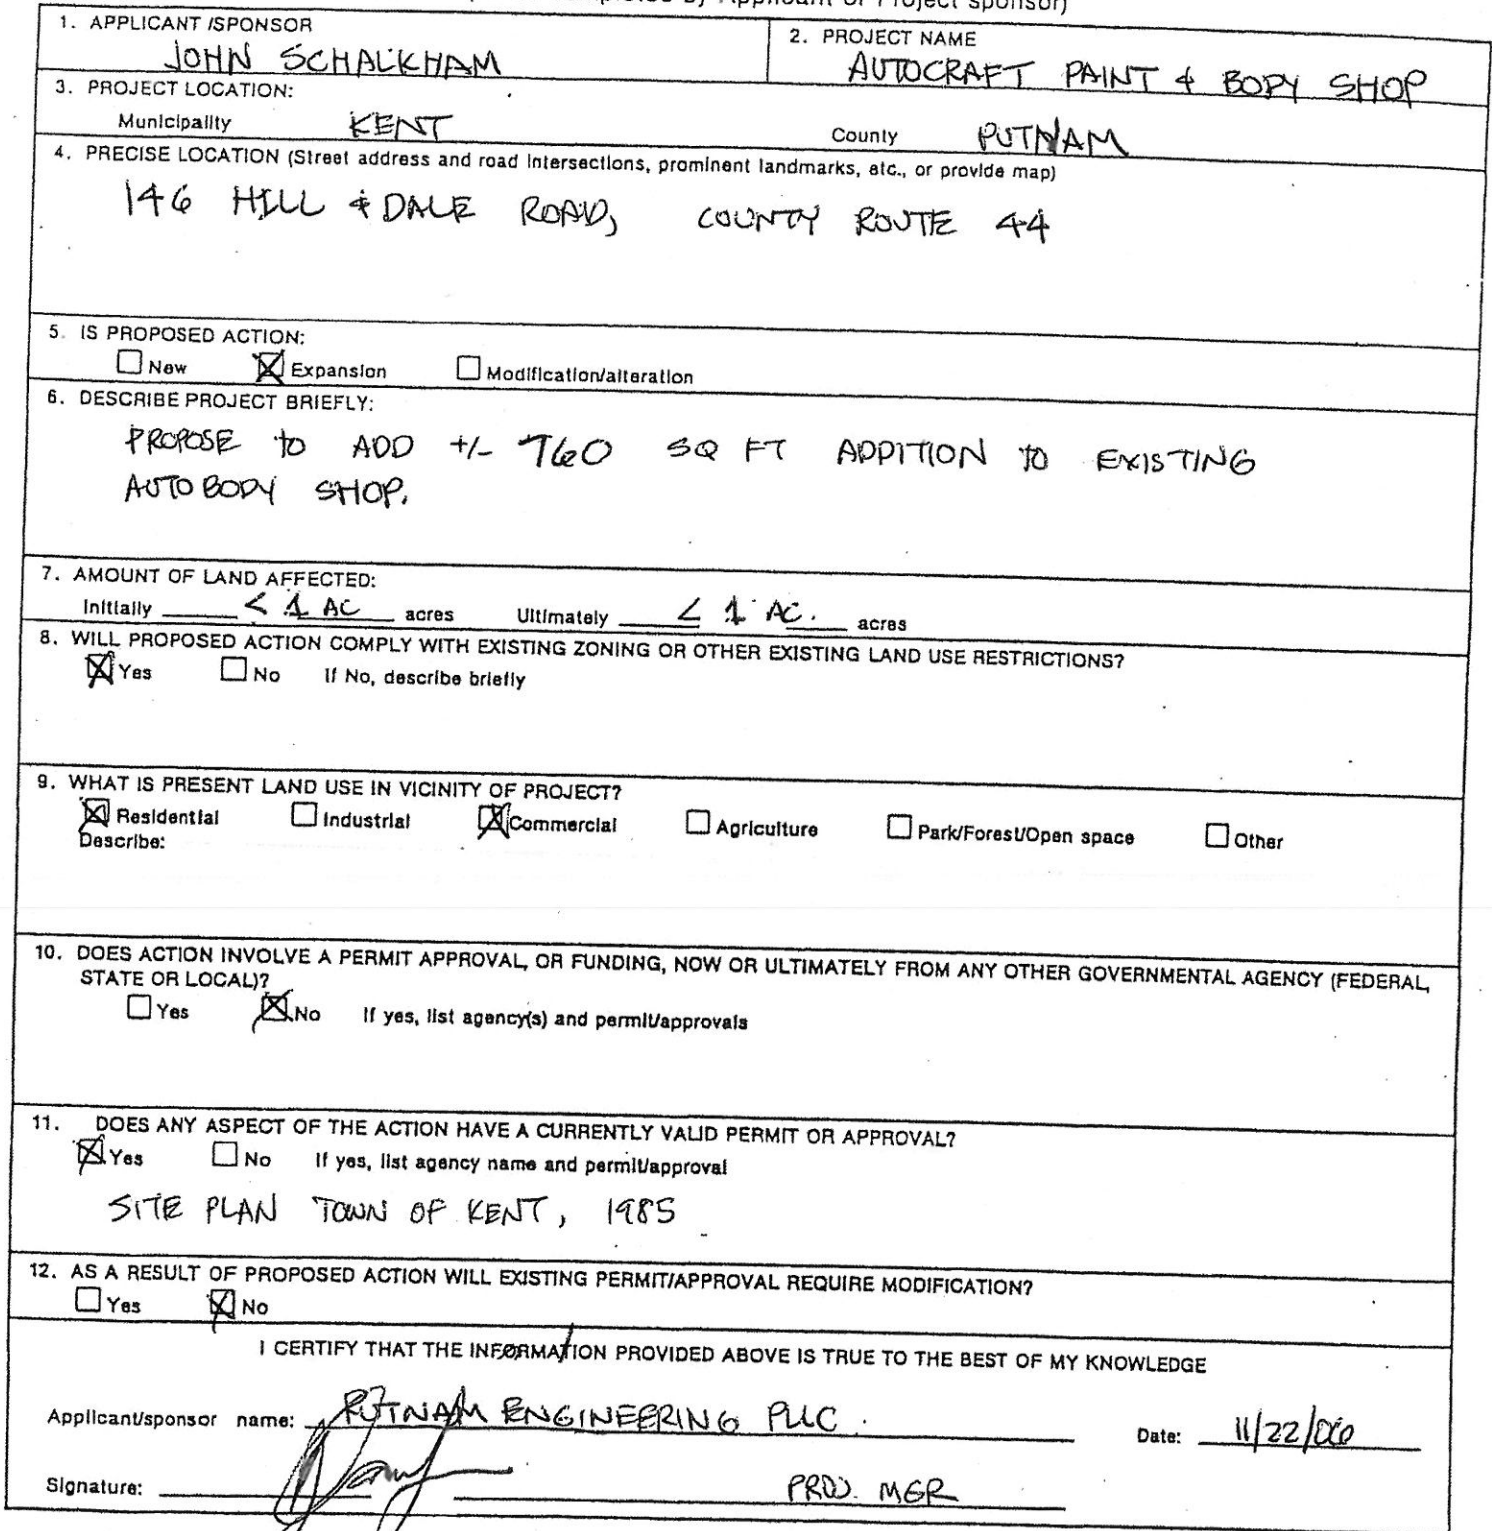 by Applicant or Project sponsor)
1. APPLICANT /SPONSOR
JOHN SCHALKHAM
2. PROJECT NAME
AUTOCRAFT PAINT & BODY SHOP
3. PROJECT LOCATION:
Municipality KENT County PUTNAM
4. PRECISE LOCATION (Street address and road intersections, prominent landmarks, etc., or provide map)
146 HILL & DALE ROAD, COUNTY ROUTE 44
5. IS PROPOSED ACTION:
☐ New ☒ Expansion ☐ Modification/alteration
6. DESCRIBE PROJECT BRIEFLY:
PROPOSE to ADD +/- 760 SQ FT ADDITION TO EXISTING
AUTOBODY SHOP.
7. AMOUNT OF LAND AFFECTED:
Initially < 1 AC acres Ultimately < 1 AC. acres
8. WILL PROPOSED ACTION COMPLY WITH EXISTING ZONING OR OTHER EXISTING LAND USE RESTRICTIONS?
☒ Yes ☐ No If No, describe briefly
9. WHAT IS PRESENT LAND USE IN VICINITY OF PROJECT?
☒ Residential ☐ Industrial ☒ Commercial ☐ Agriculture ☐ Park/Forest/Open space ☐ Other
Describe:
10. DOES ACTION INVOLVE A PERMIT APPROVAL, OR FUNDING, NOW OR ULTIMATELY FROM ANY OTHER GOVERNMENTAL AGENCY (FEDERAL,
STATE OR LOCAL)?
☐ Yes ☒ No If yes, list agency(s) and permit/approvals
11. DOES ANY ASPECT OF THE ACTION HAVE A CURRENTLY VALID PERMIT OR APPROVAL?
☒ Yes ☐ No If yes, list agency name and permit/approval
SITE PLAN TOWN OF KENT, 1985
12. AS A RESULT OF PROPOSED ACTION WILL EXISTING PERMIT/APPROVAL REQUIRE MODIFICATION?
☐ Yes ☒ No
I CERTIFY THAT THE INFORMATION PROVIDED ABOVE IS TRUE TO THE BEST OF MY KNOWLEDGE
Applicant/sponsor name: PUTNAM ENGINEERING PLLC. Date: 11/22/06
Signature: PROJ. MGR